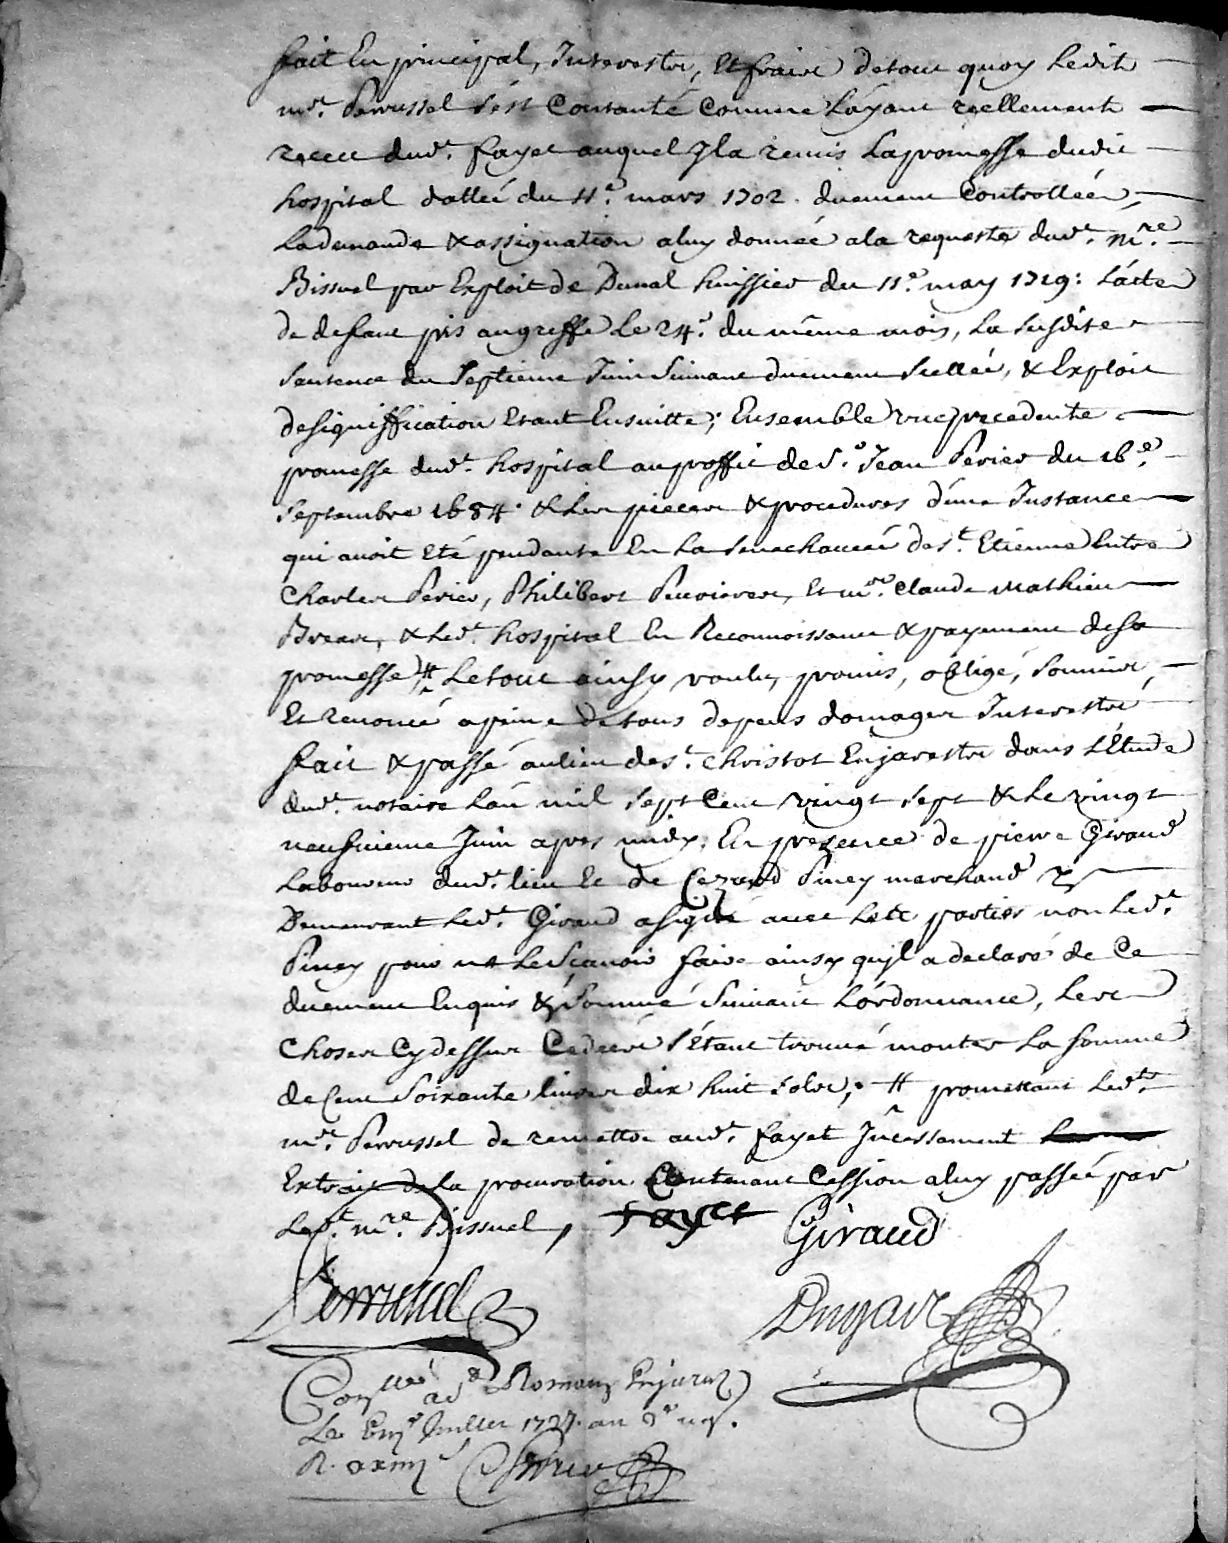 fait En principal, Interestz, et fraix detout quoy Ledit
mre. Perrussel s'est Contanté Comme L'ayant reellement
receu dudt. fayet auquel Jl a remis Lapromesse dudit
hospital dattée du 4e. mars 1702. duement Controllée,
La demande & assignation a luy donnée a la requeste dudt. mre.
Bissuel par Exploit de Duval huissier du 11e. may 1719: L'acte
de defaut pris au greffe Le 24e. du même mois, La susdite
sentence du septieme Juin suivant duement scellée, & Exploit
de signiffication Etant Ensuitte; Ensemble une precedente
promesse dudt. hospital au proffit de Sr. Jean Perier du 16e.
septembre 1684. & Les pieces & procedures d'une Instance
qui avoit eté pendante En La senechaucée de St. Etienne Entre
Charles Perier, Philibert Et mre. Claude Mathieu
& Ledt. hospital En Reconnoissance & payement de sa
promesse, # Le tout ainsy voulu, promis, obligé, soumis,
Et renoncé a peine de tous depens domages Interestz
fait & passé au lieu de St. Christot En jarestz dans L'Etude
dudt. notaire L'an mil sept Cent vingt sept & Le vingt
neufvieme Juin apres midy, En presence de pierre Giraud
Laboureur dudt. lieu Et de Cezard Piney marchand
Demeurant Ledt. Giraud a signé avec Les parties non Ledt.
Piney pour ne Le sçavoir faire ainsy qu'jl a declaré de Ce
duement Enquis & sommé suivant L'ordonnance, Les
Choses Cy dessus Cedées s'étant trouvé monter La somme
de Cent soixante livres dix huit solz, # promettant Ledt.
mre. Perrussel de remettre audt. fayet Jncessament
Extrait de la procuration Contenant Cession a luy passée par
Ledt. mre. Bissuel,
fayet Giraud
Perrussel
Dugair
Conllé a St Romain En jarez
Le Juillet 1727.
R.